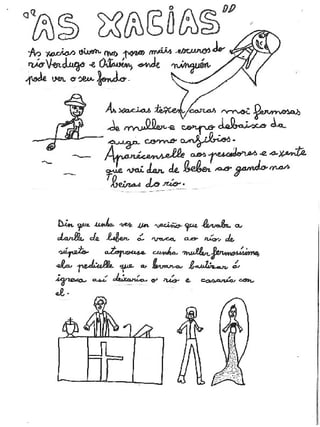 "AS XACIAS"
As xacias viven nos pozos máis escuros do
río Verdugo e Oitavén, onde ninguén
pode ver o seu fondo.
As xacias teñen caras moi fermosas
de muller e corpo debaixo da
auga como anfibios.
Aparécenselle aos pescadores e a xente
que vai dar de beber ao gando nas
beiras do río.
Din que unha vez un veciño que levaba a
darlle de beber á vaca ao río, de
súpeto atopouse cunha muller fermosísima,
ela pedíulle que a levara bautizar á
igrexa así deixaría o río e casaría con
el.